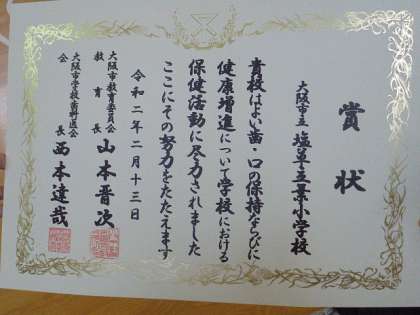 賞状
大阪市立 塩草立葉小学校
貴校はよい歯・口の保持ならびに
健康増進について学校における
保健活動に尽力されました
ここにその努力をたたえます
令和二年二月十三日
大阪市教育委員会
教育長 山本晋次
大阪市学校歯科医会
会長 西本達哉